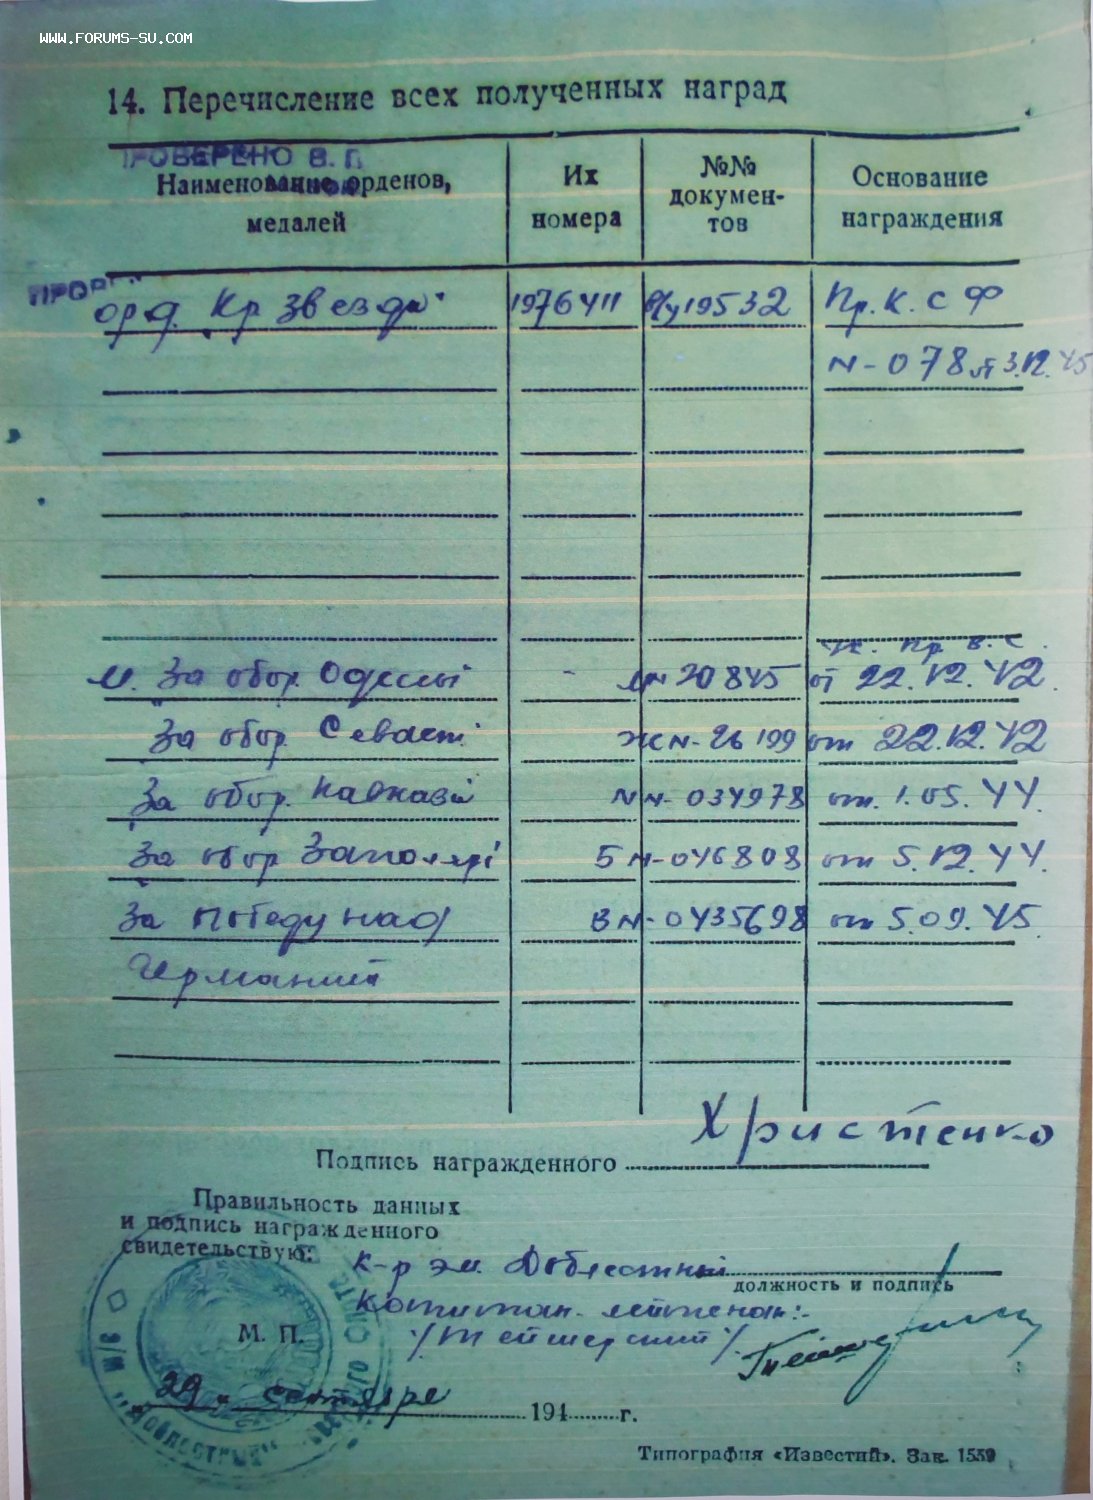 WWW.FORUMS-SU.COM
14. Перечисление всех полученных наград
ПРОВЕРЕНО В. П.
Наименование орденов, медалей
Их номера
№№ докумен-тов
Основание награждения
орд. Кр Звезды 1976411 в/у 19532 Пр. К. С Ф
N-078 от 3.12.45
Пр. В. С.
м. За обор. Одессы - N 20845 от 22.12.42.
За обор. Севаст. Ж N-26199 от 22.12.42
За обор. Кавказа N-034978 от. 1.05.44.
За обор Заполяр Б N-046808 от 5.12.44.
За победу над В N-0435698 от 5.09.45.
Германией
Христенко
Подпись награжденного
Правильность данных
и подпись награжденного
свидетельствую:
К-р эм. Доблестный
должность и подпись
Капитан-лейтенант:-
/Тейшерский/
М. П.
„29„ сентября 194 г.
Типография «Известий». Зак. 1559